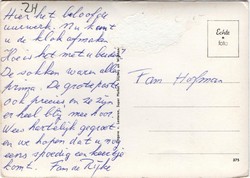 24
Hier het beloofde
uurwerk. Nu kunt
u de klok afmaken
Hoe is het met u beiden?
De sokken waren alle
prima. De grote past
ook precies en ze zijn
er heel blij mee hoor.
Wees hartelijk gegroet
en we hopen dat u nog
eens spoedig een keertje
komt. Fam de Rijke
Fam Hofman
Echte
foto
875